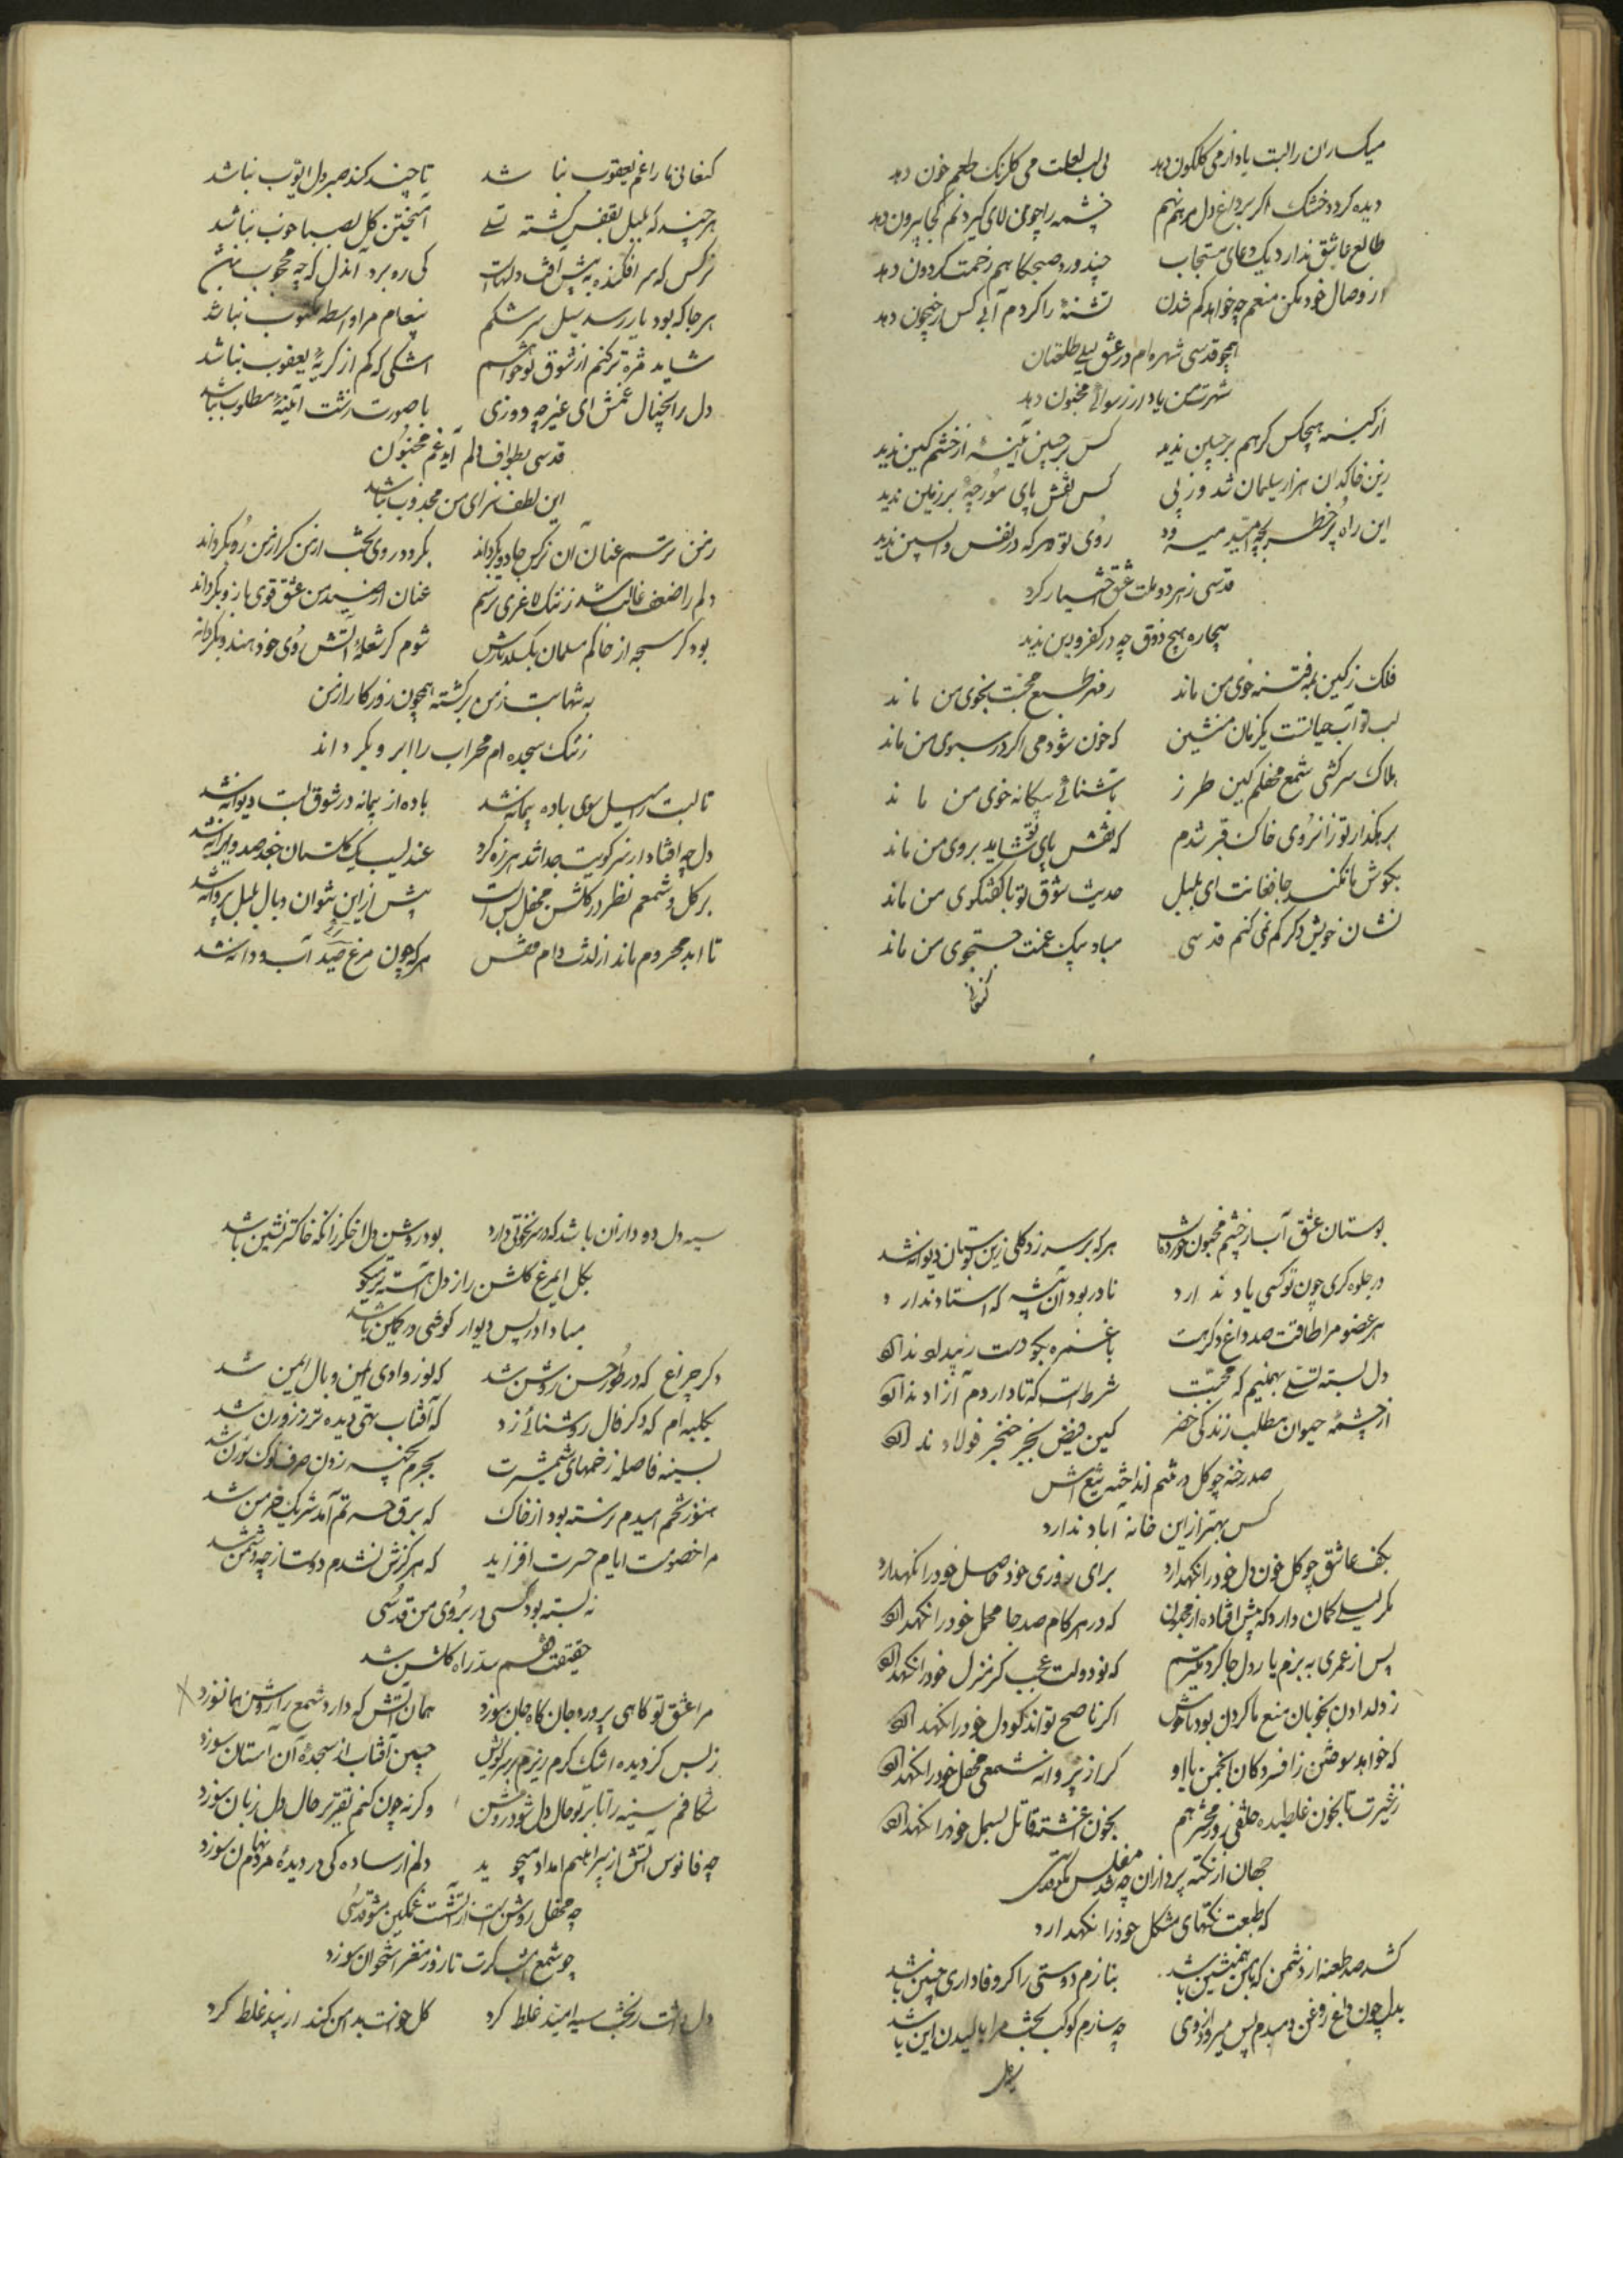 میکساران را لبت یاد از می گلگون دهد بی لب لعلت می گلرنگ طعم خون دهد
دیده گردد خشک اگر بر داغ دل مرهم نهم چشمه را چون لای گیرد نم کجا بیرون دهد
طالع عاشق ندارد یک دعای مستجاب چند ورد صبحگاهم زحمت گردون دهد
از وصال خود مکن منعم چه خواهد کم شدن تشنهٔ را گر دم آبی کس از جیحون دهد
همچو قدسی شهره‌ام در عشق لیلی طلعتان
شهرت من یاد از رسوائی مجنون دهد
از کینه هیچکس گرهم بر جبین ندید کس بر جبین آینه از خشم کین ندید
زین خاکدان هزار سلیمان شد و ز پی کس نقش پای مورچهٔ بر زمین ندید
این راه پر خطر بچه امید میرود روی تو هر که در نفس واپسین ندید
قدسی ز هر دو ملت عشق اختیار کرد
بیچاره هیچ ذوق چه در کفر و دین ندید
فلک ز کین بفتنه خوی من ماند زمهر طبع محبت بخوی من ماند
لب تو آب حیاتست یکزمان منشین که خون شود می اگر در سبوی من ماند
هلاک سرکشی شمع محفلم کین طرز بآشنائی بیگانه خوی من ماند
برهگذار تو زانروی خاک قبر شدم که نقش پای تو شاید بروی من ماند
بگوش ما نکند جا فغانت ای بلبل حدیث شوق تو با گفتگوی من ماند
نشان خویش دگر گم نمی کنم قدسی مباد پیک غمت جستجوی من ماند
کنعانی
کنعانی ما را غم یعقوب نباشد تا چند کند صبر دل ایوب نباشد
هر چند که بلبل بقفس گشته تسلی آمیختن گل بصبا خوب نباشد
نرگس که سر افکنده به پیش افت دلهاست کی ره برد آندل که چه محجوب نباشد
هر جا که بود یار رسد سیل سرشکم پیغام مرا واسطه مکتوب نباشد
شاید مژه تر کنم از شوق تو خواهم اشکی که کم از گریهٔ یعقوب نباشد
دل را بخیال غمش ای غیر چه دوزی با صورت زشت آینه مطلوب نباشد
قدسی بطواف دلم آید غم مجنون
این لطف سزای من مجذوب نباشد
ز من ترسم عنان آن نرگس جادو بگرداند بگردد روی بخت از من گر از من رو بگرداند
دلم را ضعف غالب شد ز ننگ لاغری ترسم عنان از صید من عشق قوی بازو بگرداند
بود گر سبحه از خاکم مسلمان بگسلد تارش شوم گر شعلهٔ آتش ز وی خود هندو بگرداند
به تنها بت ز من برگشته همچون روزگار از من
ز ننگ سجده‌ام محراب را ابرو بگرداند
تا لبت را میل سوی باده پیمانه شد باده از پیمانه در شوق لبت دیوانه شد
دل چه افتاد از سر کویت جدا شد هرزه گرد عندلیب یک گلستان جغد صد ویرانه شد
بر گل و شمعم نظر در گلشن و محفل بس است بیش از این نتوان وبال بلبل و پروانه شد
تا ابد محروم ماند از لذت دام و قفس هر که چون مرغ حرم صید آب و دانه شد
بوستان عشق آب از چشم مجنون خورده است هر که بر سر زد گلی زین بوستان دیوانه شد
در جلوه گری چون تو کسی یاد ندارد نادر بود آن پیشه که استاد ندارد
هر عضو مرا طاقت صد داغ دگر هست
دل بسته تسلی نهم که محبت شرط است که تا دارد آزاد ندارد
از چشمه حیوان مطلب زندگی خضر کین فیض بجز خنجر فولاد ندارد
صد رخنه چو گل در تنم انداخته تیغش
کس بهتر از این خانه آباد ندارد
بکف عاشق چو گل خون دل خود را نگهدارد برای روزی خود حاصل خود را نگهدارد
مگر لیلی گمان دارد که پیش افتاده از مجنون که در هر گام صد جا محمل خود را نگهدارد
پس از عمری به بزم یار دل جا کرد میترسم که نو دولت عجب گر منزل خود را نگهدارد
ز دل دادن بخوبان منع ما کردن بود ناخوش اگر ناصح تواند گو دل خود را نگهدارد
که خواهد سوختن ز افسردگان انجمن یا او گر از پروانه شمعی محفل خود را نگهدارد
ز غیرت تا بخون غلطیده خلقی روز محشر هم بخون آغشته قاتل بسمل خود را نگهدارد
جهان از نکته پردازان چه شد مفلس
که طبعت نکتهای مشکل خود را نگهدارد
کشد صد طعنه از دشمن که با من همنشین باشد بنازم دوستی را گر وفاداری چنین باشد
بدل چون داغ روغن چه سازم کوکب بخت مرا بالیدن این باشد
سیه دل
سیه دل دود از آن باشد که در سر نخوتی دارد بود روشن دل اخگر زانکه خاکستر نشین باشد
بگل ای مرغ گلشن راز دل آهسته تر میگو
مبادا در پس دیوار گوشی در کمین باشد
دگر چراغ که در طور حسن روشن شد که نور وادی ایمن وبال ایمن شد
بکلبه‌ام که دگر فال روشنائی زد که آفتاب تهی دیده تر ز روزن شد
بسینه فاصله زخمهای شمشیرت بجرم بخیه زدن صرف نوک سوزن شد
هنوز تخم امیدم نرسته بود از خاک که برق حسرتم آمد شریک خرمن شد
مرا خصومت ایام حسرت افزاید که هرگزش نشدم دوست از چه دشمن شد
نه بسته بود کسی در بروی من قدسی
حقیقت قفسم سد راه گلشن شد
مرا عشق تو گاهی پرورد جان گاه جان سوزد همان آتش که دارد شمع را روشن همان سوزد
ز بس کز دیده اشک گرم ریزم بر سر کویش جبین آفتاب از سجدهٔ آن آستان سوزد
شکافم سینه را تا بر تو حال دل شود روشن وگرنه چون کنم تقریر حال دل زبان سوزد
چه فانوس آتش از پیراهنم امداد میجوید دلم از ساده
چه محفل روشن است از آتشت غمگین مشو قدسی
چو شمع امشب گرت تا روز مغز استخوان سوزد
دل داشت ز بخت سیه امید غلط کرد گل خواست بدامن کند از بید غلط کرد